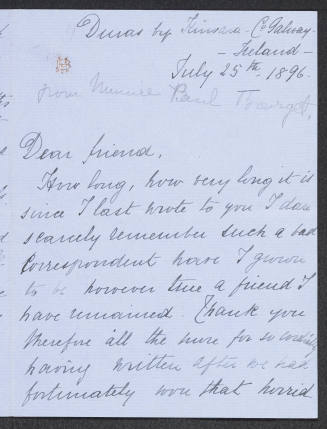 Duras by Kinvara - Co Galway -
- Ireland -
July 25th. 1896.
from Minnie Paul Bourget,
Dear friend,
How long, how very long it is
since I last wrote to you I dare
scarcely remember such a bad
Correspondent have I grown
to be however true a friend I
have remained. Thank you
therefore all the more for so cordially
having written after we had
fortunately won that horrid